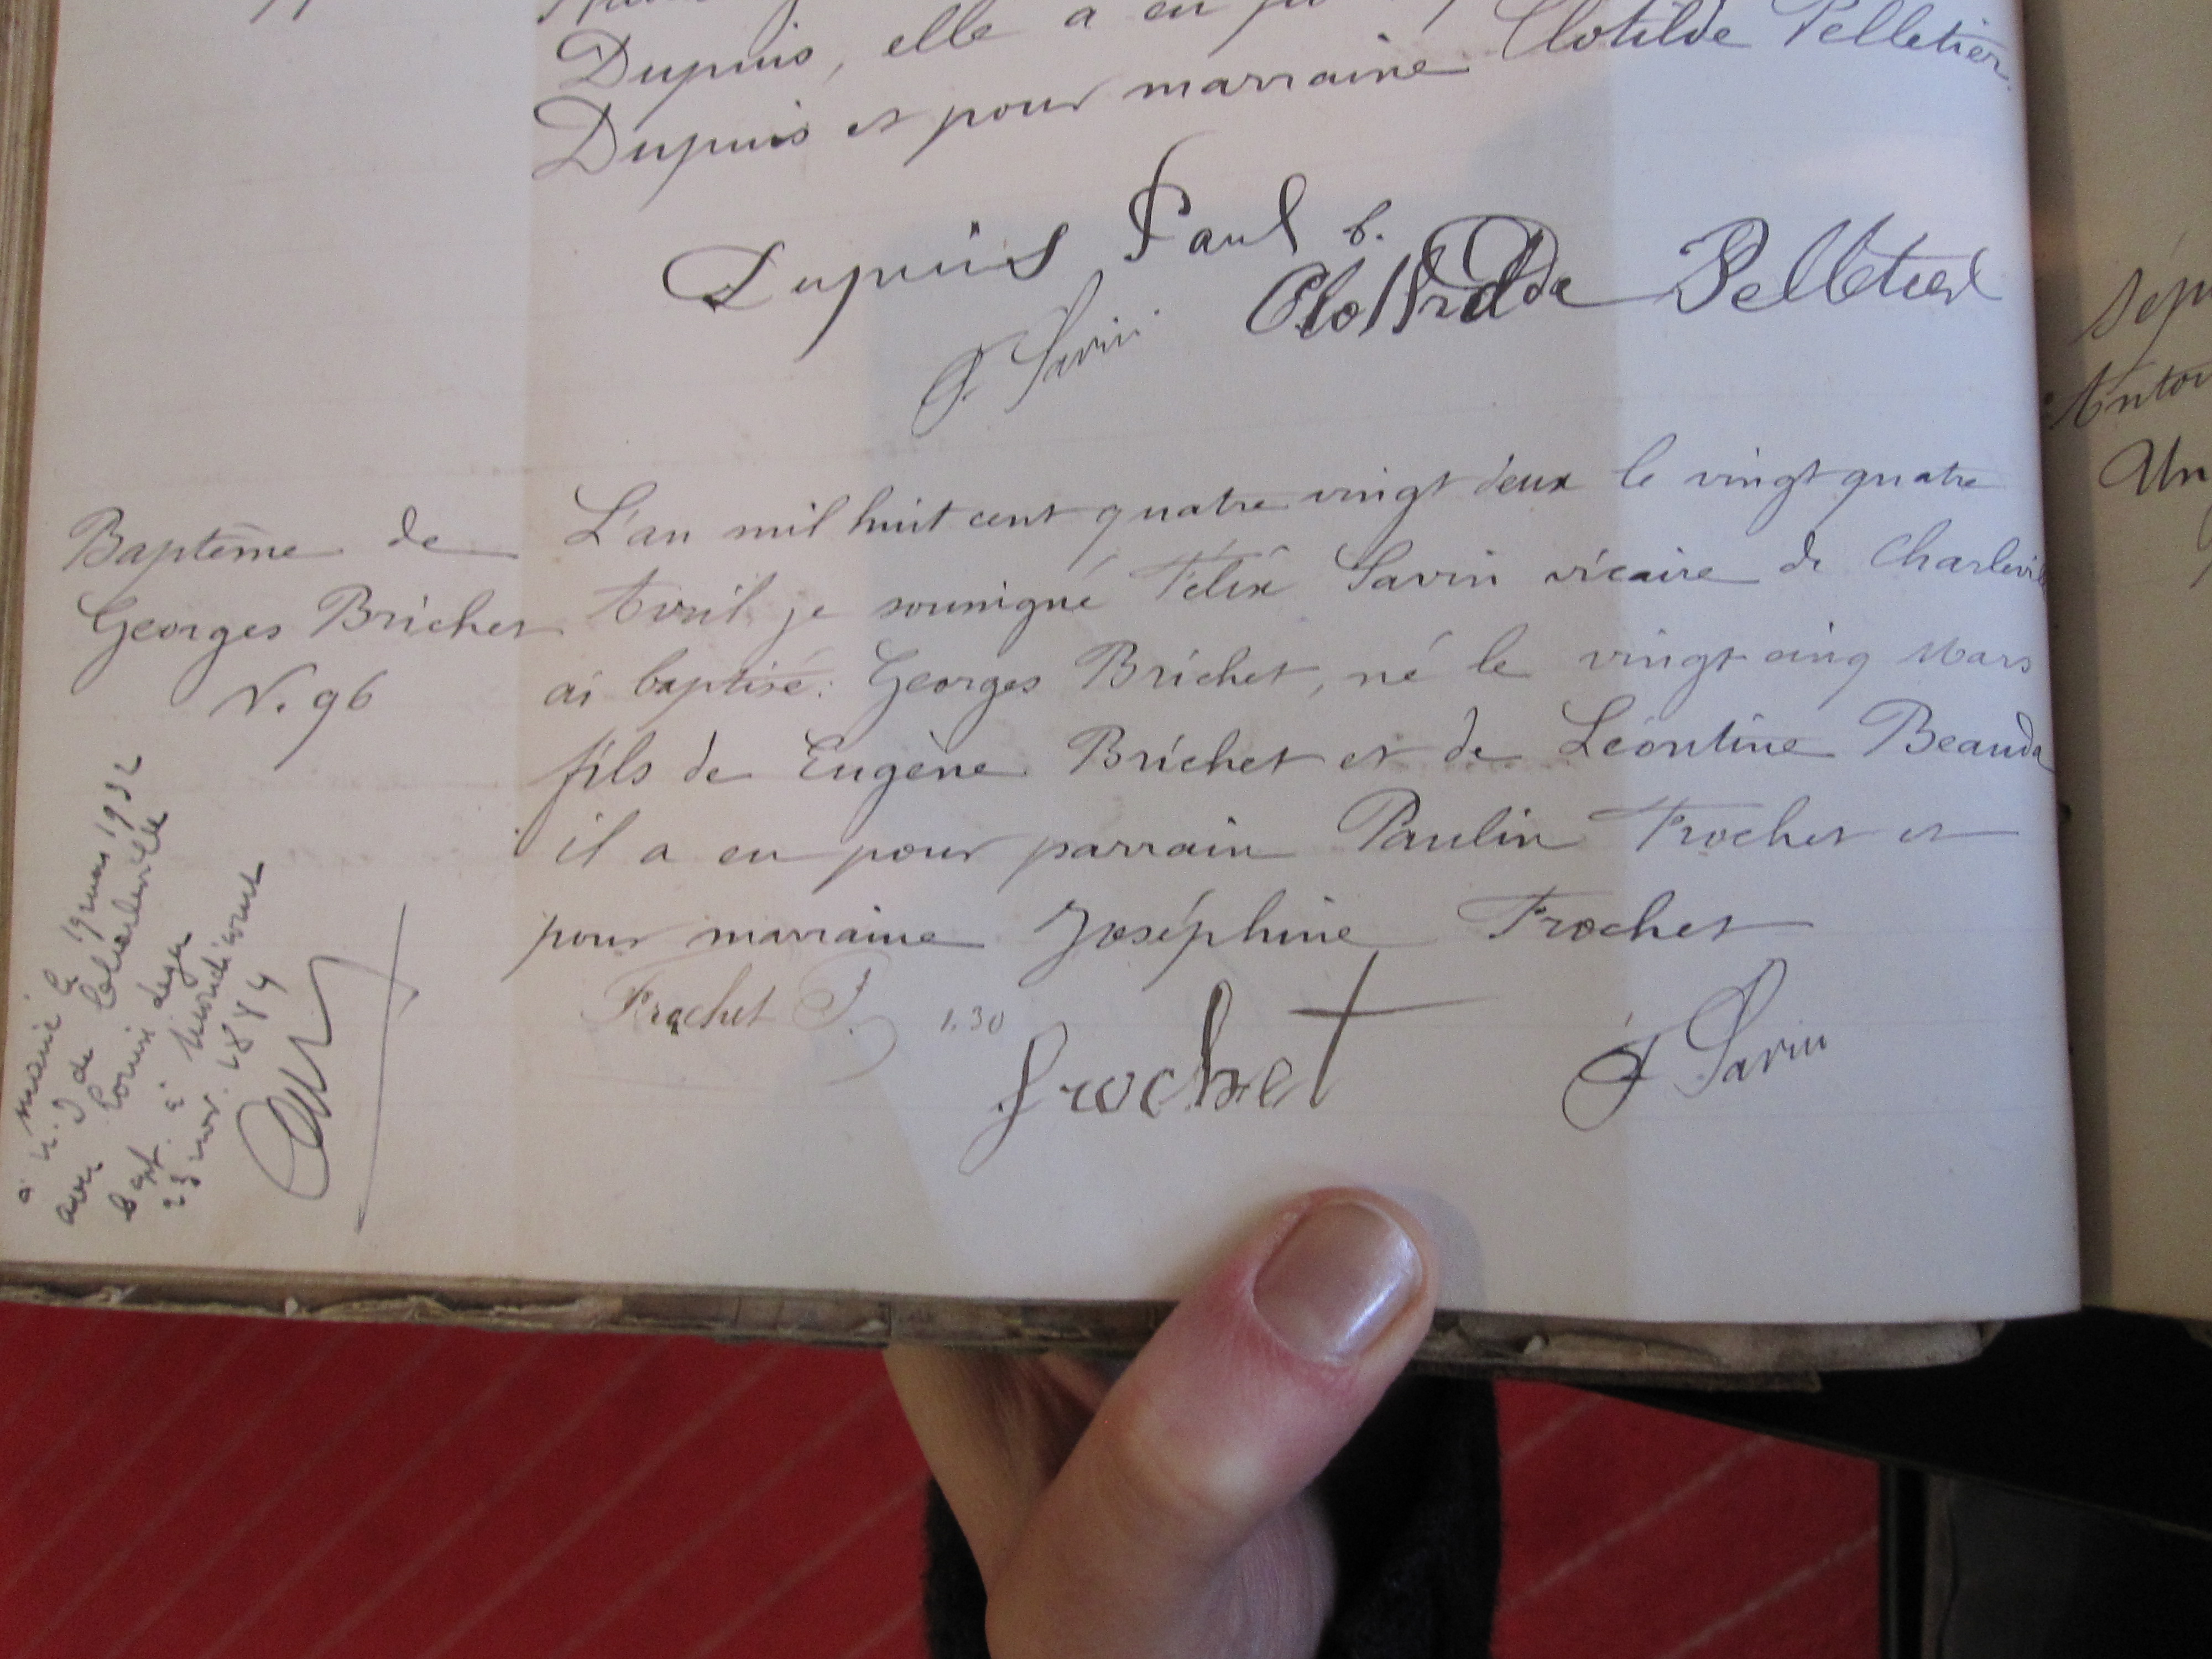 Dupuis, elle a eu
Dupuis et pour marraine Clotilde Pelletier
Dupuis Paul
Clotilde Pelletier
F. Savin
Baptême de
Georges Brichet
N. 96
L'an mil huit cent quatre vingt deux le vingt quatre
Avril je soussigné Félix Savin vicaire de Charleville
ai baptisé: Georges Brichet, né le vingt cinq Mars
fils de Eugène Brichet et de Léontine Beauda
il a eu pour parrain Paulin Frochet et
pour marraine Joséphine Frochet
Frochet P. 1.30
Frochet
F Savin
marié le 19 mars 1932
à N. D de Charleville
avec Louise
bapt. à
23 nov. 1884
sép
Anto
Un